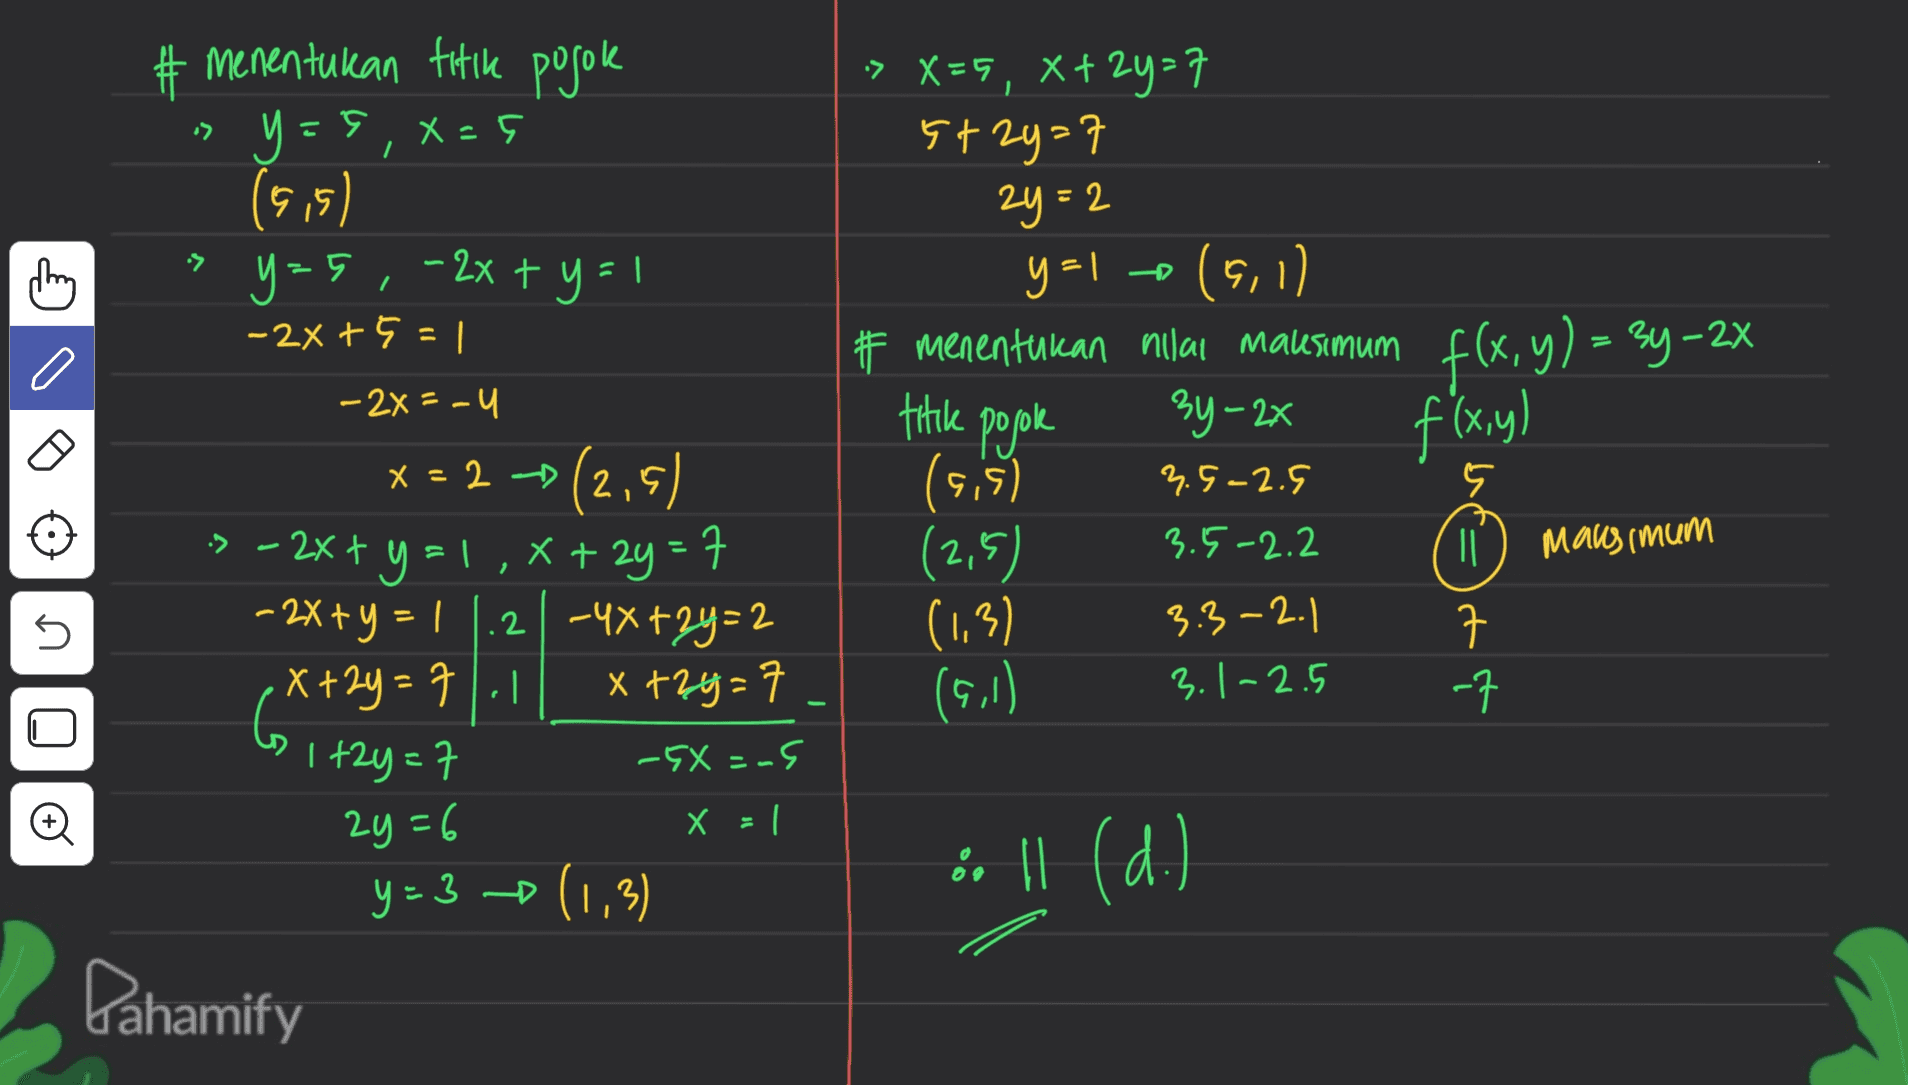 # menentukan titik pojok
y = 5, x = 5
(5,5)
y = 5, -2x + y = 1
-2x + 5 = 1
-2x = -4
x = 2 → (2,5)
-2x + y = 1, x + 2y = 7
-2x + y = 1 | .2 | -4x + 2y = 2
x + 2y = 7 | .1 | x + 2y = 7 -
1 + 2y = 7 -5x = -5
2y = 6 x = 1
y = 3 → (1,3)
x = 5, x + 2y = 7
5 + 2y = 7
2y = 2
y = 1 → (5,1)
# menentukan nilai maksimum f(x,y) = 3y - 2x
titik pojok 3y - 2x f(x,y)
(5,5) 3.5 - 2.5 5
(2,5) 3.5 - 2.2 11 maksimum
(1,3) 3.3 - 2.1 7
(5,1) 3.1 - 2.5 -7
∴ 11 (d.)
Pahamify